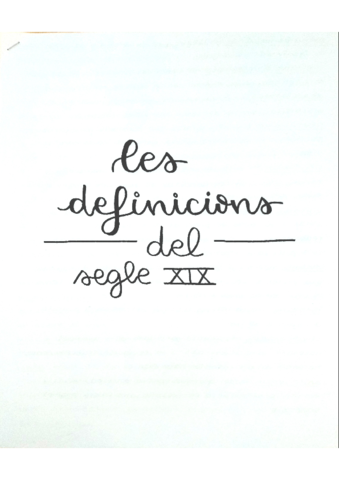 les
definicions
del
segle XIX